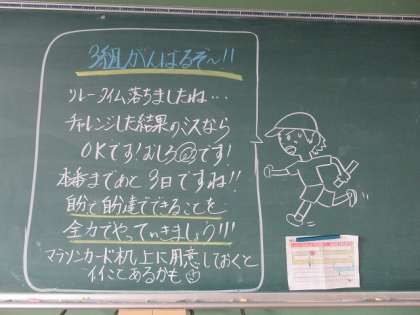 3組がんばるぞ〜!!
リレータイム落ちましたね…
チャレンジした結果のミスなら
OKです!むしろ◎です!
本番まであと3日ですね!!
自分で自分達でできることを
全力でやっていきましょう!!!
マラソンカード机上に用意しておくと
イイことあるかも